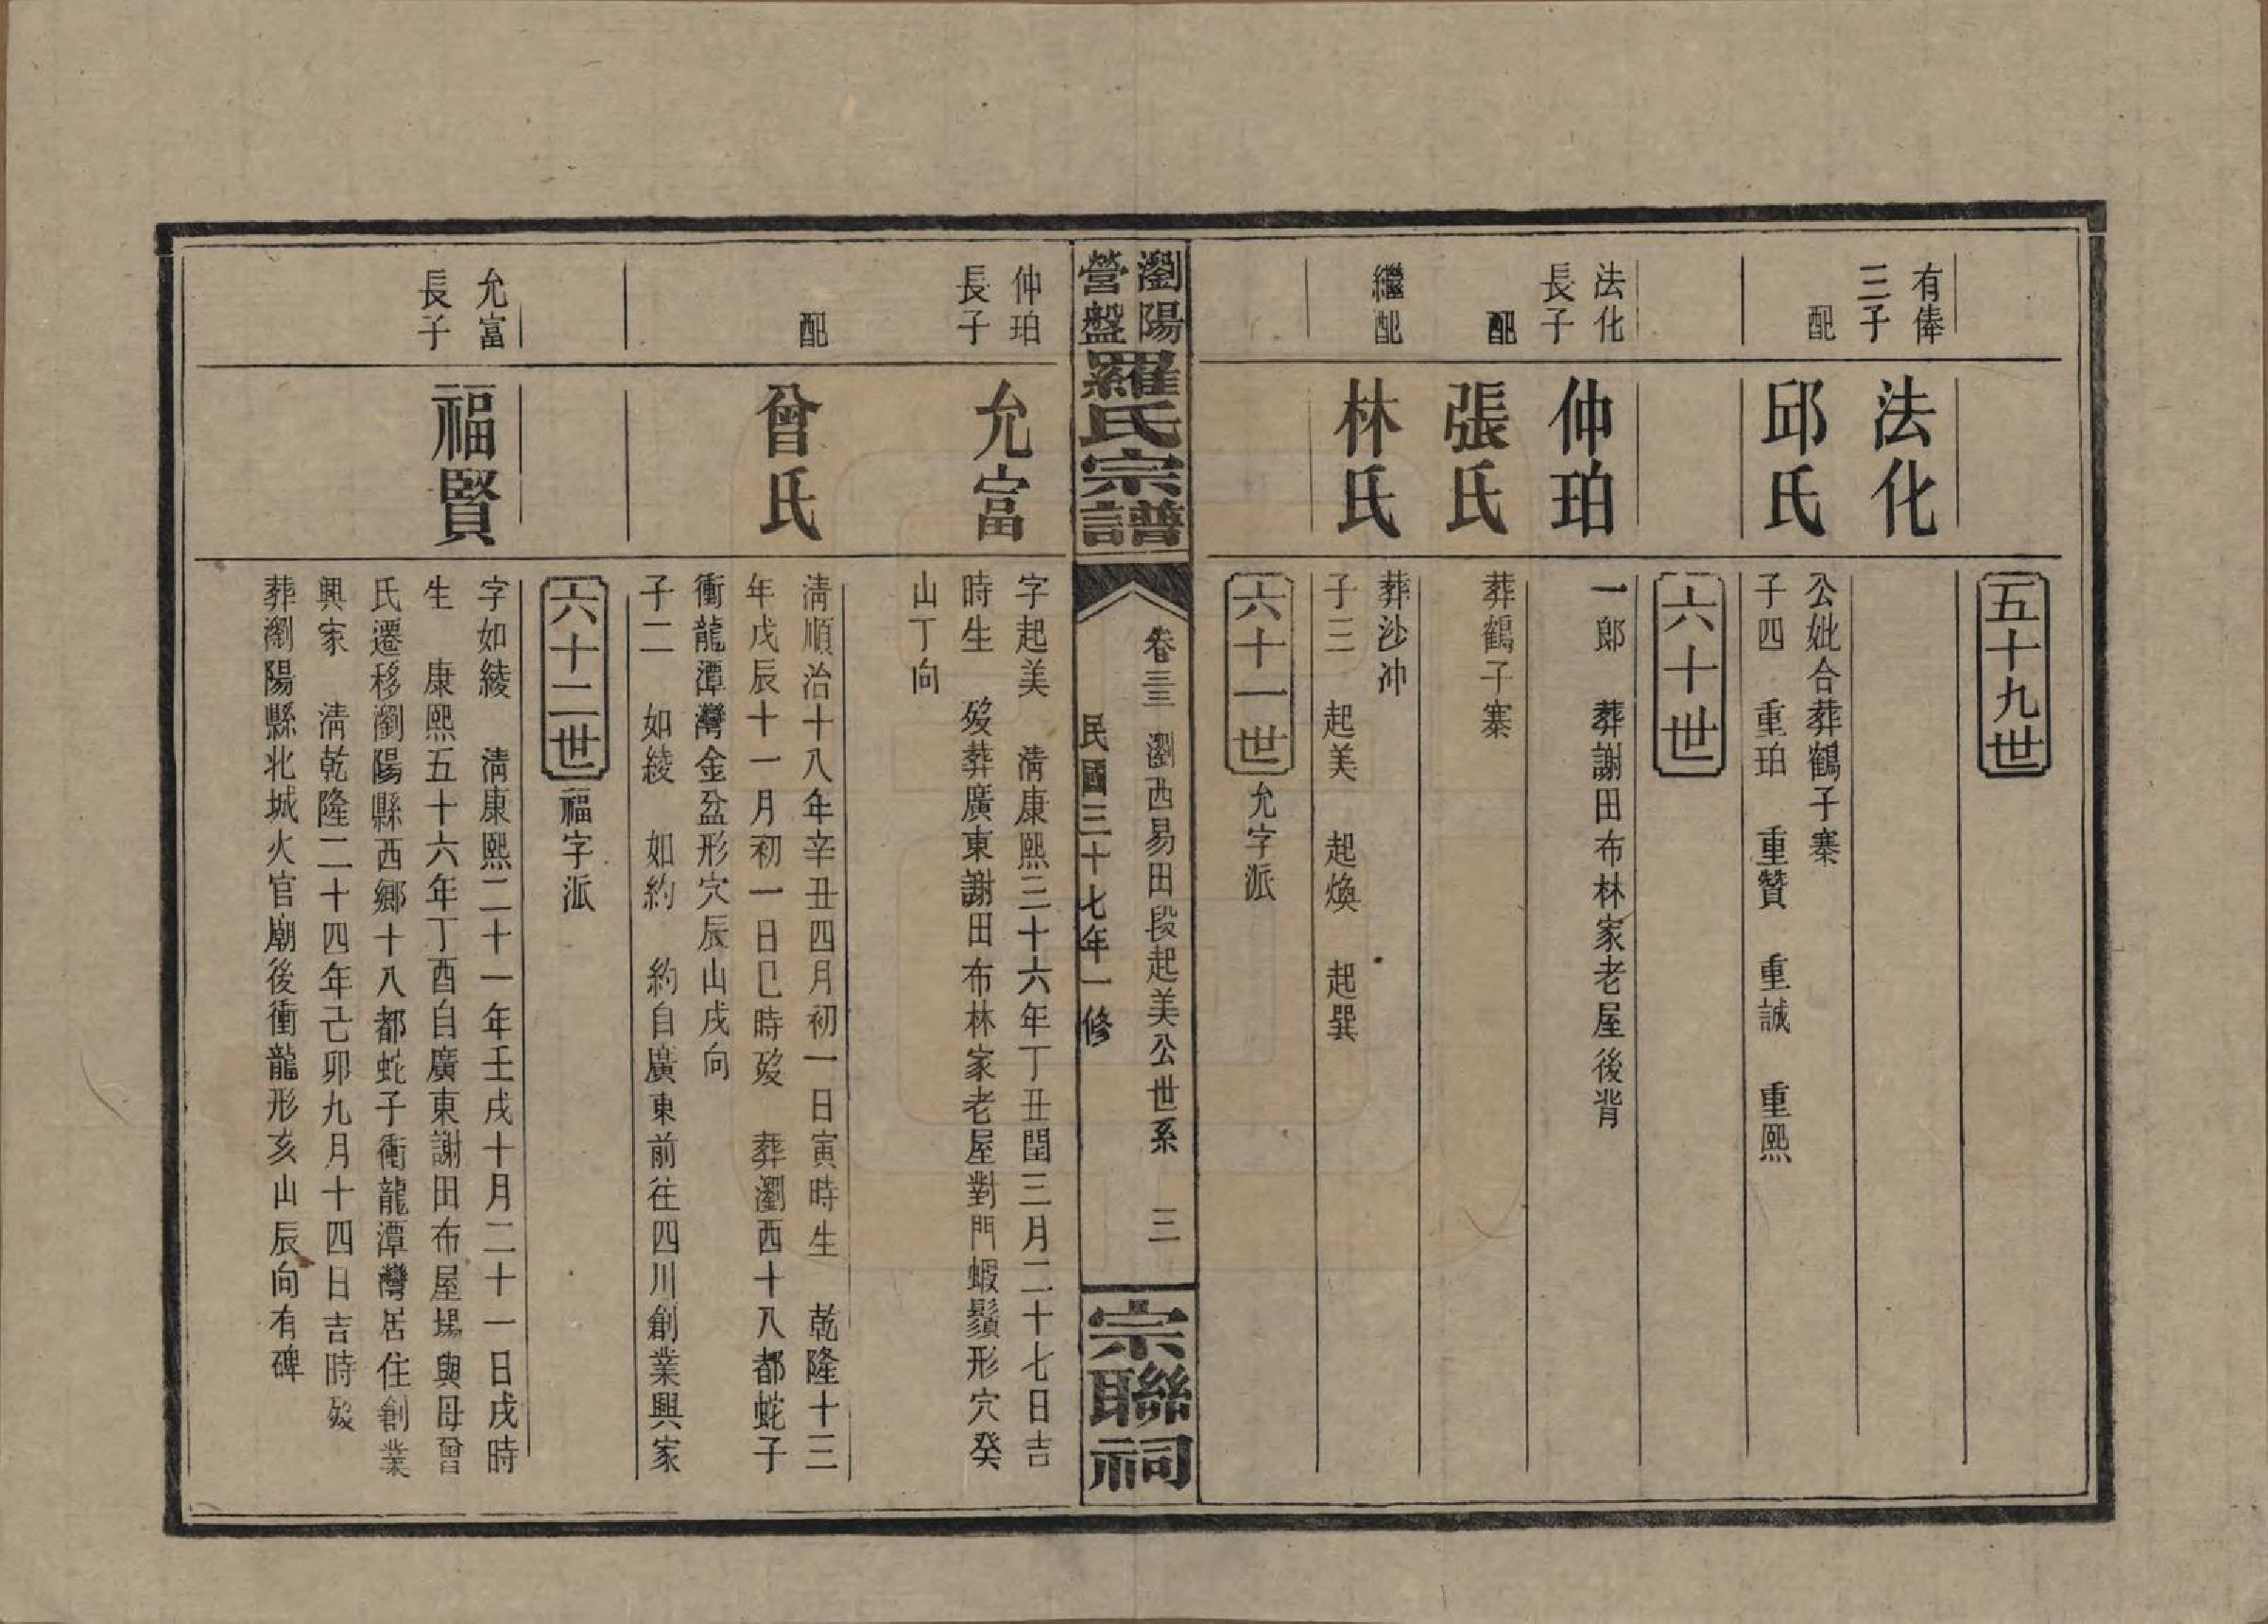 五十九世
有俸
三子
法化
公妣合葬鶴子寨
配
邱氏
子四　重珀　重贊　重誠　重熙
六十世
法化
長子
仲珀
一郎　葬謝田布林家老屋後背
配
張氏
葬鶴子寨
繼配
林氏
葬沙冲
子三　起美　起煥　起巽
六十一世
允字派
瀏陽
營盤
羅氏宗譜
卷三三　瀏西易田段起美公世系　三
民國三十七年一修
宗聯祠
仲珀
長子
允富
字起美　淸康熙三十六年丁丑閏三月二十七日吉
時生　歿葬廣東謝田布林家老屋對門蝦鬚形穴癸
山丁向
配
曾氏
淸順治十八年辛丑四月初一日寅時生　乾隆十三
年戊辰十一月初一日巳時歿　葬瀏西十八都蛇子
衝龍潭灣金盆形穴辰山戌向
子二　如綾　如約　約自廣東前往四川創業興家
六十二世
福字派
允富
長子
福賢
字如綾　淸康熙二十一年壬戌十月二十一日戌時
生　康熙五十六年丁酉自廣東謝田布屋場與母曾
氏遷移瀏陽縣西鄉十八都蛇子衝龍潭灣居住創業
興家　淸乾隆二十四年己卯九月十四日吉時歿
葬瀏陽縣北城火官廟後衝龍形亥山辰向有碑